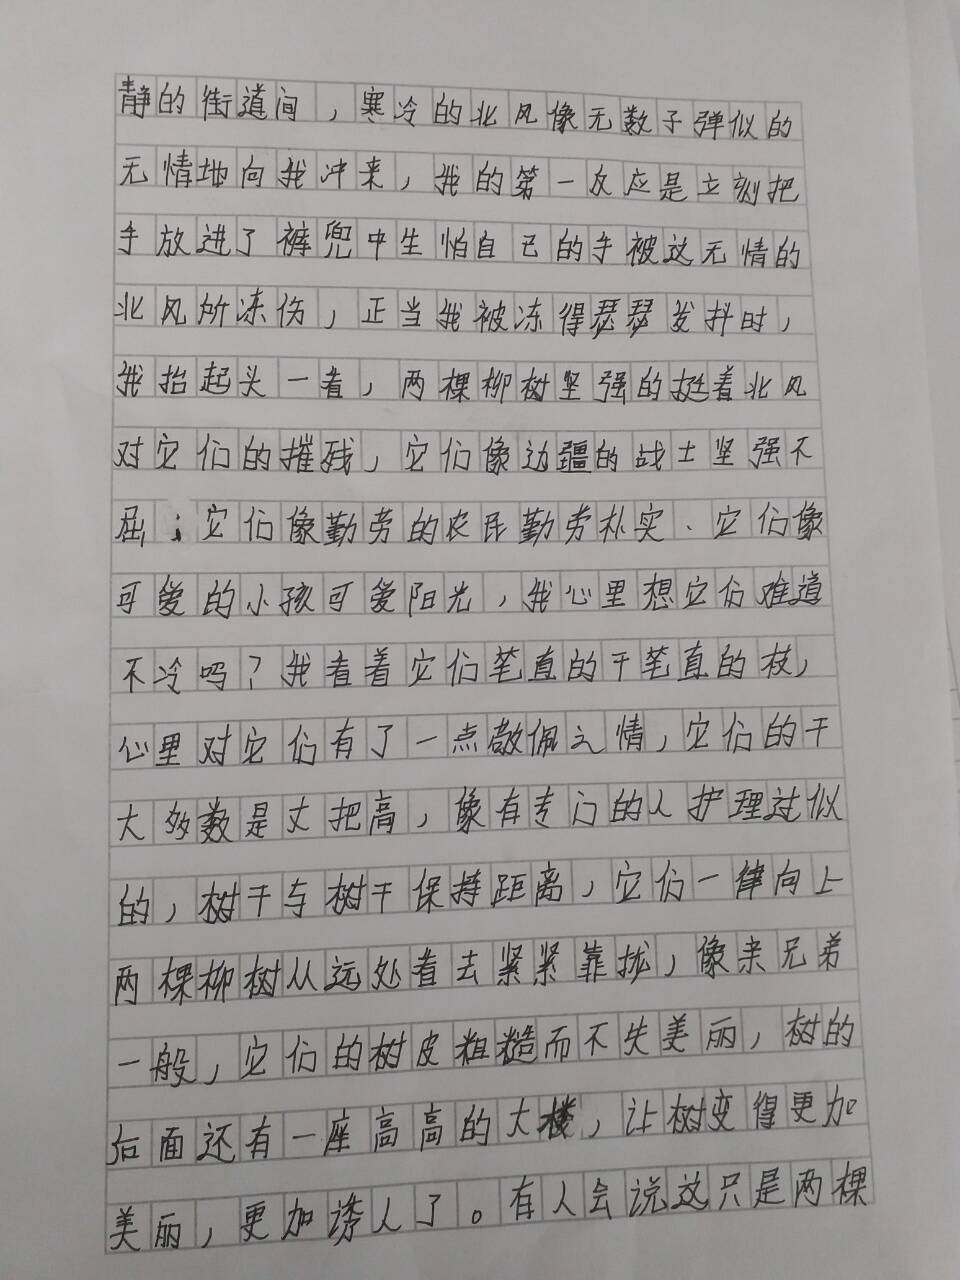 静的街道间，寒冷的北风像无数子弹似的
无情地向我冲来，我的第一反应是立刻把
手放进了裤兜中生怕自己的手被这无情的
北风所冻伤，正当我被冻得瑟瑟发抖时，
我抬起头一看，两棵柳树坚强的挺着北风
对它们的摧残，它们像边疆的战士坚强不
屈；它们像勤劳的农民勤劳朴实、它们像
可爱的小孩可爱阳光，我心里想它们难道
不冷吗？我看着它们笔直的干笔直的枝，
心里对它们有了一点敬佩之情，它们的干
大多数是丈把高，像有专门的人护理过似
的，树干与树干保持距离，它们一律向上
两棵柳树从远处看去紧紧靠拢，像亲兄弟
一般，它们的树皮粗糙而不失美丽，树的
后面还有一座高高的大楼，让树变得更加
美丽，更加诱人了。有人会说这只是两棵